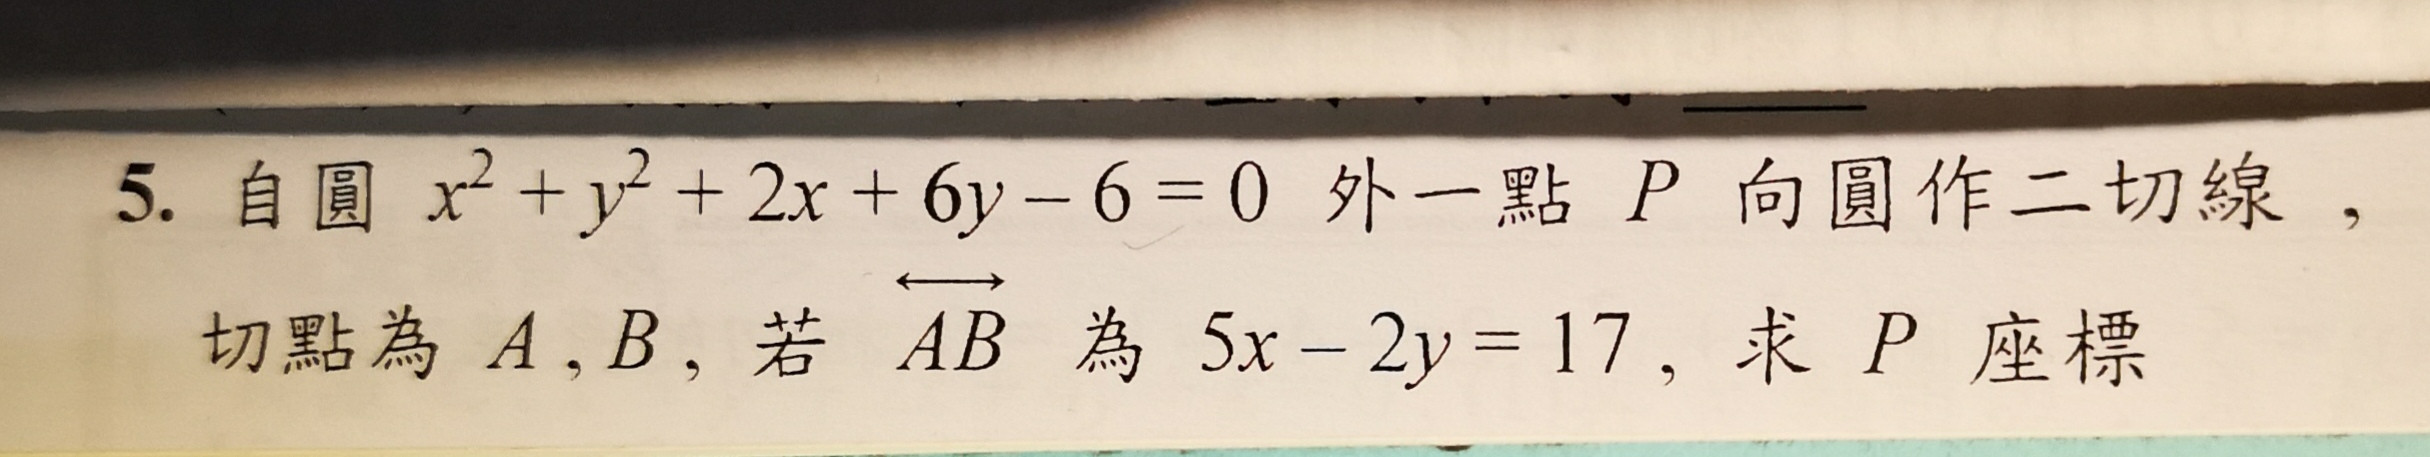 5. 自圓 x² + y² + 2x + 6y – 6 = 0 外一點 P 向圓作二切線，
切點為 A , B , 若 \overleftrightarrow{AB} 為 5x – 2y = 17 , 求 P 座標